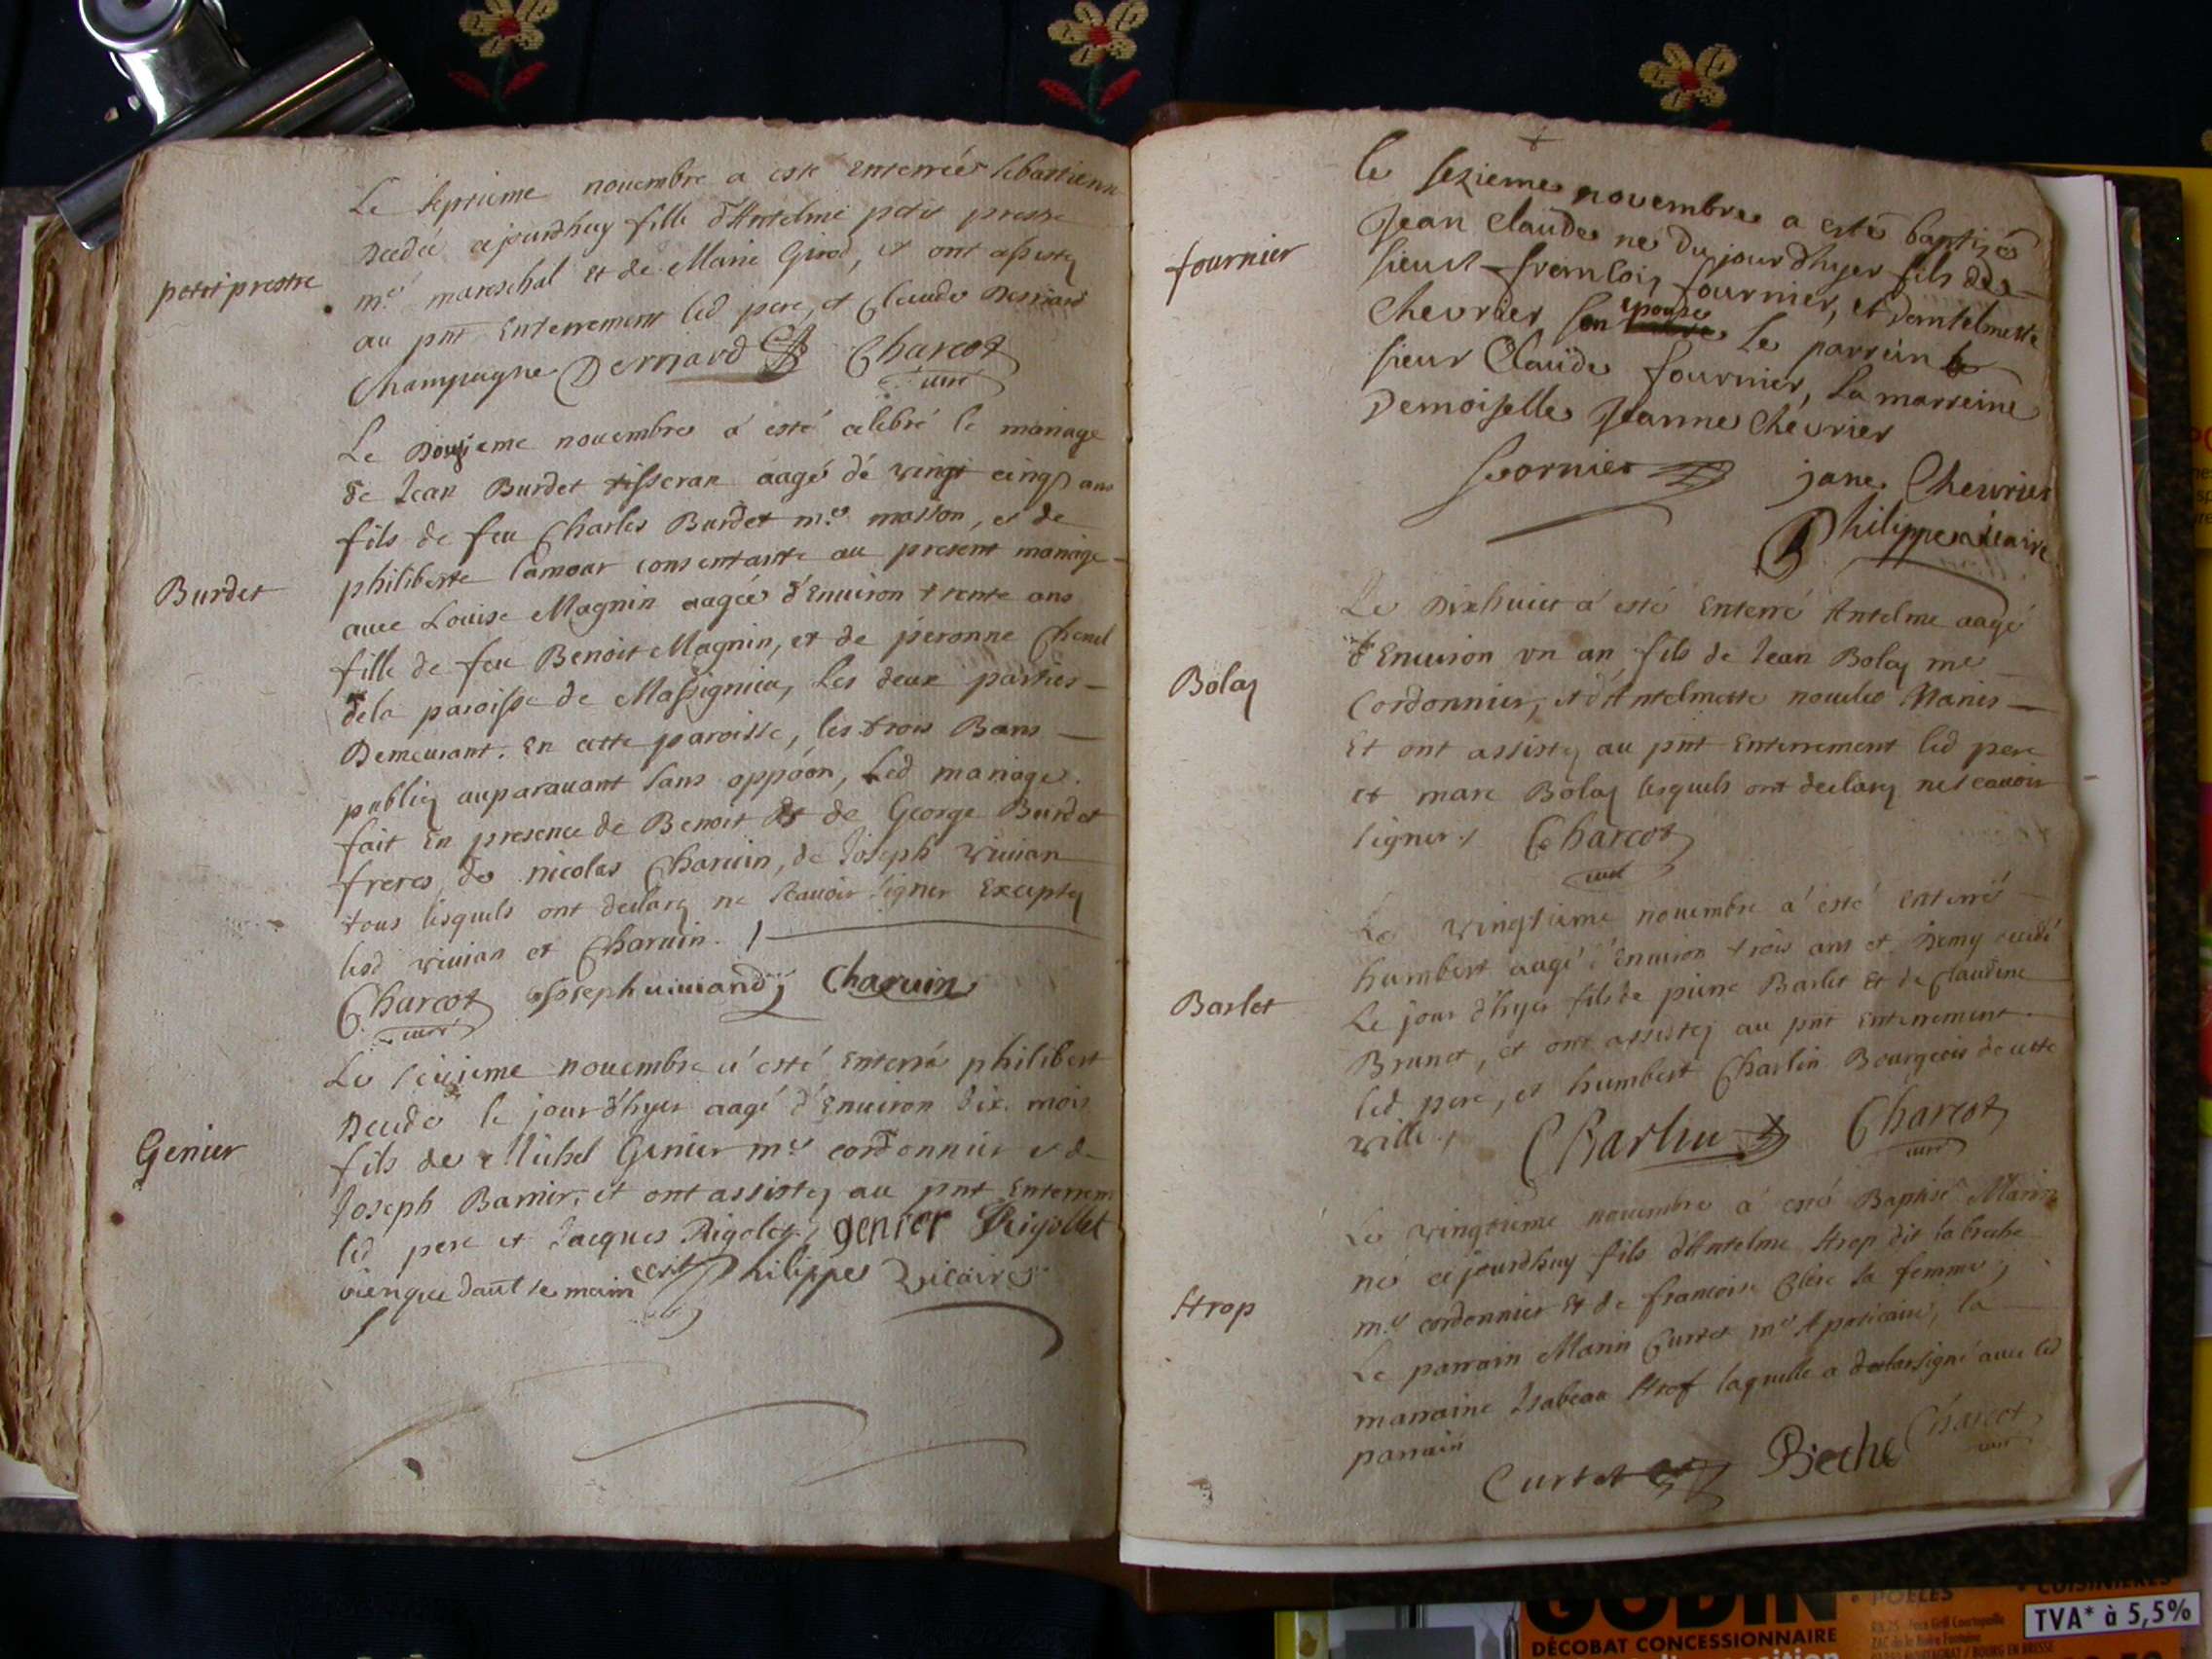 petit prestre
Le septieme novembre a esté enterrée sebastienne
decedée ajourdhuy fille d'Antelme petit prestre
m.e mareschal et de Marie Girod, et ont assistez
au pnt enterrement led pere, et Claude Bernard
Champagne Bernard Charcot
curé
Burdet
Le douzieme nouembre a esté celebré le mariage
de Jean Burdet tisseran aagé de vingt cinq ans
fils de feu Charles Burdet m.e masson, et de
philiberte lamour consentante au present mariage
auec Louise Magnin aagée d'Enuiron trente ans
fille de feu Benoit Magnin, et de peronne
dela paroisse de Massignieu, Les deux parties
Demeurant en cette paroisse, les trois Bans
publiez auparauant sans oppoon, Led mariage
fait En presence de Benoit et de George Burdet
freres, de nicolas Charuin, de Joseph viuian
tous lesquels ont declarez ne scauoir signer Exceptez
lesd viuian et Charuin.
Charcot Joseph uiuiand Charuin
curé
Genier
Le seizieme nouembre a esté Enterré philibert
decedé le jour d'hyer aagé d'Enuiron dix mois
fils de Michel Genier m.e cordonnier et de
Joseph et ont assistez au pnt Enterrem
led pere et Jacques Rigolet genier Rigollet
Philippe Vicaire
fournier
le sezieme novembre a esté baptizé
Jean Claude né du jour d'hyer fils de
sieur francois fournier, et d'antelmette
Chevrier son epouse Le parrein
sieur Claude fournier, La marreine
Demoiselle Jeanne Chevrier
fornier jane Cheurier
Philippe vicaire
Bolaz
Le Dixhuict a esté Enterré Antelme aagé
d'Enuiron vn an fils de Jean Bolaz me
Cordonnier, et d'Antelmette Manis
Et ont assistez au pnt Enterrement led pere
et marc Bolaz lesquels ont declarez ne scauoir
signer Charcot
curé
Barlet
Le vingtieme nouembre a esté enterré
humbert aagé d'enuiron trois ans et demy decedé
Le jour d'hyer fils de pierre Barlet et de Claudine
Brunet, et ont assistez au pnt enterrement
led pere, et humbert Charlin Bourgeois de cette
ville. Charlin Charcot
curé
Strop
Le vingtieme nouembre a esté Baptisé Marin
né ajourdhuy fils d'Antelme Strop dit
m.e cordonnier et de francoise Clerc sa femme;
Le parrain Marin Curtet m.e Apoticaire, la
marraine Isabeau laquelle a signé auec led
parrain
Curtet Bieche Charcot
curé
GODIN
DÉCOBAT CONCESSIONNAIRE
POELES
CUISINIÈRES
TVA* à 5,5%